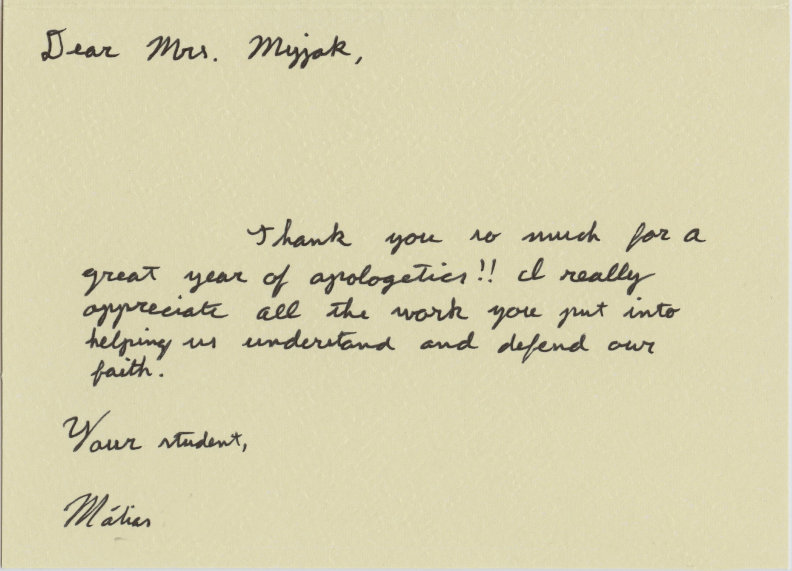 Dear Mrs. Myjak,
Thank you so much for a
great year of apologetics!! I really
appreciate all the work you put into
helping us understand and defend our
faith.
Your student,
Mátias